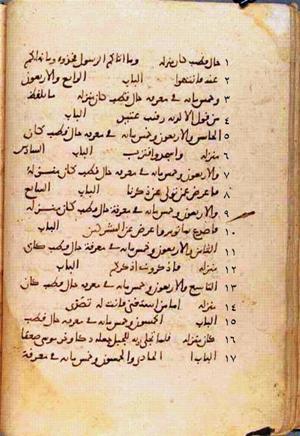 ١ حال قطب كان منزله وما اتاكم الرسول فخذوه وما نهاكم
٢ عنه فانتهوا الباب الرابع والاربعون
٣ وخمسمائة في معرفة حال قطب كان منزله ما يلفظ
٤ من قول الا لديه رقيب عتيد الباب
٥ الخامس والاربعون وخمسمائة في معرفة حال قطب كان
٦ منزله واسجد واقترب الباب السادس
٧ والاربعون وخمسمائة في معرفة حال قطب كان منزله
٨ فاعرض عن من تولى عن ذكرنا الباب السابع
٩ والاربعون وخمسمائة في معرفة حال قطب كان منزله
١٠ فاصدع بما تؤمر واعرض عن المشركين الباب
١١ الثامن والاربعون وخمسمائة في معرفة حال قطب كان
١٢ منزله فاذكروني اذكركم الباب
١٣ التاسع والاربعون وخمسمائة في معرفة حال قطب كان
١٤ منزله اما من استغنى فانت له تصدى
١٥ الباب الخمسون وخمسمائة في معرفة حال قطب
١٦ كان منزله فلما تجلى ربه للجبل جعله دكا وخر موسى صعقا
١٧ الباب الحادي والخمسون وخمسمائة في معرفة